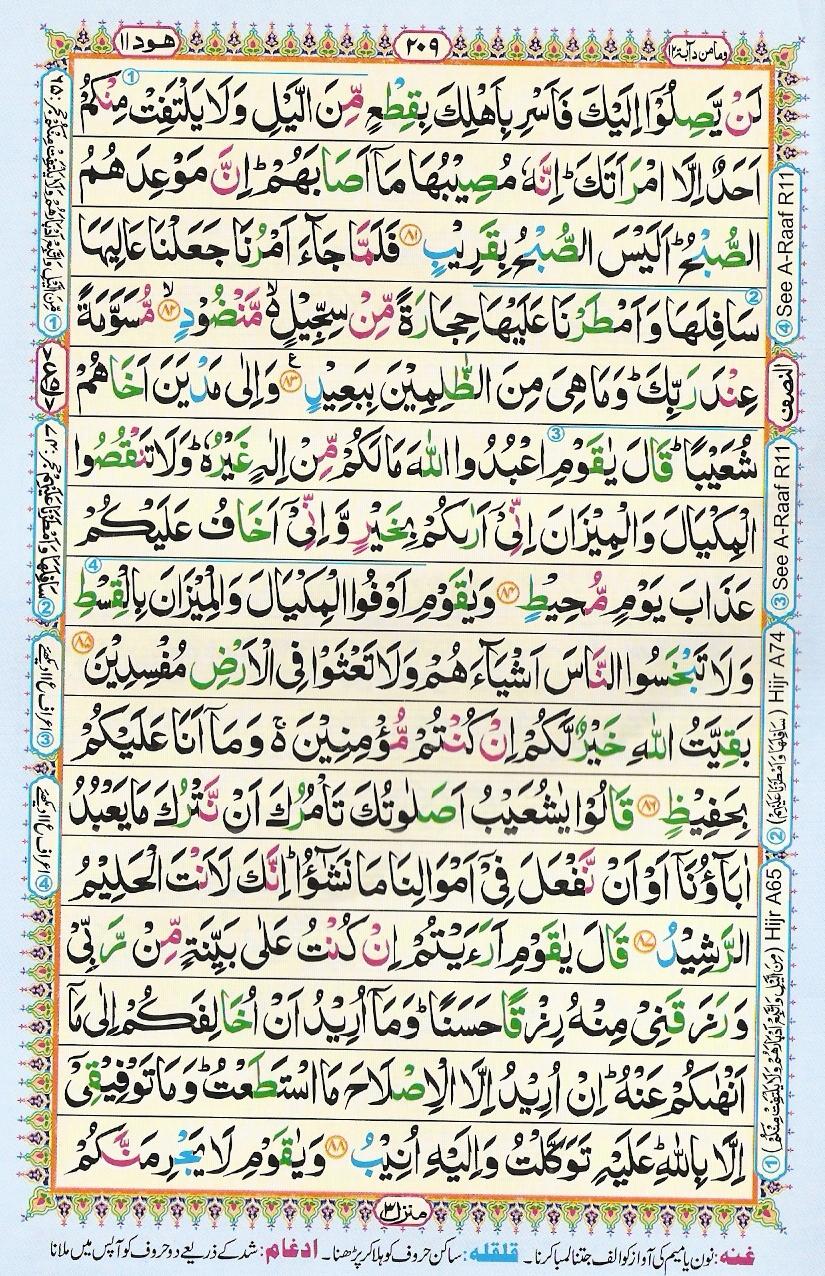 وما من دآبة ۱۲
۲۰۹
هود ۱۱
لَنْ يَّصِلُوْۤا اِلَيْكَ فَاَسْرِ بِاَهْلِكَ بِقِطْعٍ مِّنَ الَّيْلِ وَلَا يَلْتَفِتْ مِنْكُمْ
اَحَدٌ اِلَّا امْرَاَتَكَ ؕ اِنَّهٗ مُصِيْبُهَا مَاۤ اَصَابَهُمْ ؕ اِنَّ مَوْعِدَهُمُ
الصُّبْحُ ؕ اَلَيْسَ الصُّبْحُ بِقَرِيْبٍ ۸۱ فَلَمَّا جَآءَ اَمْرُنَا جَعَلْنَا عَالِيَهَا
سَافِلَهَا وَاَمْطَرْنَا عَلَيْهَا حِجَارَةً مِّنْ سِجِّيْلٍ ۙ مَّنْضُوْدٍ ۙ ۸۲ مُّسَوَّمَةً
عِنْدَ رَبِّكَ ؕ وَمَا هِىَ مِنَ الظّٰلِمِيْنَ بِبَعِيْدٍ ۸۳ وَاِلٰى مَدْيَنَ اَخَاهُمْ
شُعَيْبًا ؕ قَالَ يٰقَوْمِ اعْبُدُوا اللّٰهَ مَا لَكُمْ مِّنْ اِلٰهٍ غَيْرُهٗ ؕ وَلَا تَنْقُصُوا
الْمِكْيَالَ وَالْمِيْزَانَ اِنِّىْۤ اَرٰىكُمْ بِخَيْرٍ وَّاِنِّىْۤ اَخَافُ عَلَيْكُمْ
عَذَابَ يَوْمٍ مُّحِيْطٍ ۸۴ وَيٰقَوْمِ اَوْفُوا الْمِكْيَالَ وَالْمِيْزَانَ بِالْقِسْطِ
وَلَا تَبْخَسُوا النَّاسَ اَشْيَآءَهُمْ وَلَا تَعْثَوْا فِى الْاَرْضِ مُفْسِدِيْنَ ۸۵
بَقِيَّتُ اللّٰهِ خَيْرٌ لَّكُمْ اِنْ كُنْتُمْ مُّؤْمِنِيْنَ ۚ۬ وَمَاۤ اَنَا عَلَيْكُمْ
بِحَفِيْظٍ ۸۶ قَالُوْا يٰشُعَيْبُ اَصَلٰوتُكَ تَاْمُرُكَ اَنْ نَّتْرُكَ مَا يَعْبُدُ
اٰبَآؤُنَاۤ اَوْ اَنْ نَّفْعَلَ فِىْۤ اَمْوَالِنَا مَا نَشٰٓؤُا ؕ اِنَّكَ لَاَنْتَ الْحَلِيْمُ
الرَّشِيْدُ ۸۷ قَالَ يٰقَوْمِ اَرَءَيْتُمْ اِنْ كُنْتُ عَلٰى بَيِّنَةٍ مِّنْ رَّبِّىْ
وَرَزَقَنِىْ مِنْهُ رِزْقًا حَسَنًا ؕ وَمَاۤ اُرِيْدُ اَنْ اُخَالِفَكُمْ اِلٰى مَاۤ
اَنْهٰىكُمْ عَنْهُ ؕ اِنْ اُرِيْدُ اِلَّا الْاِصْلَاحَ مَا اسْتَطَعْتُ ؕ وَمَا تَوْفِيْقِىْۤ
اِلَّا بِاللّٰهِ ؕ عَلَيْهِ تَوَكَّلْتُ وَاِلَيْهِ اُنِيْبُ ۸۸ وَيٰقَوْمِ لَا يَجْرِمَنَّكُمْ
④ See A-Raaf R11
النصف
③ See A-Raaf R11
② (سَافِلَهَا وَاَمْطَرْنَا عَلَيْهِمْ) Hijr A74
① (مِّنَ الَّيْلِ وَاتَّبِعْ اَدْبَارَهُمْ وَلَا يَلْتَفِتْ مِنْكُمْ) Hijr A65
① مِّنَ الَّيْلِ وَاتَّبِعْ اَدْبَارَهُمْ وَلَا يَلْتَفِتْ مِنْكُمْ حجر: ۶۵
② سَافِلَهَا وَاَمْطَرْنَا عَلَيْهِمْ حجر: ۷۴
③ اعراف ع۱۱ دیکھئے
④ اعراف ع۱۱ دیکھئے
منزل ۳
غنہ: نون یا میم کی آواز کو الف جتنا لمبا کرنا۔ قلقلہ: ساکن حروف کو ہلا کر پڑھنا۔ ادغام: شد کے ذریعے دو حروف کو آپس میں ملانا